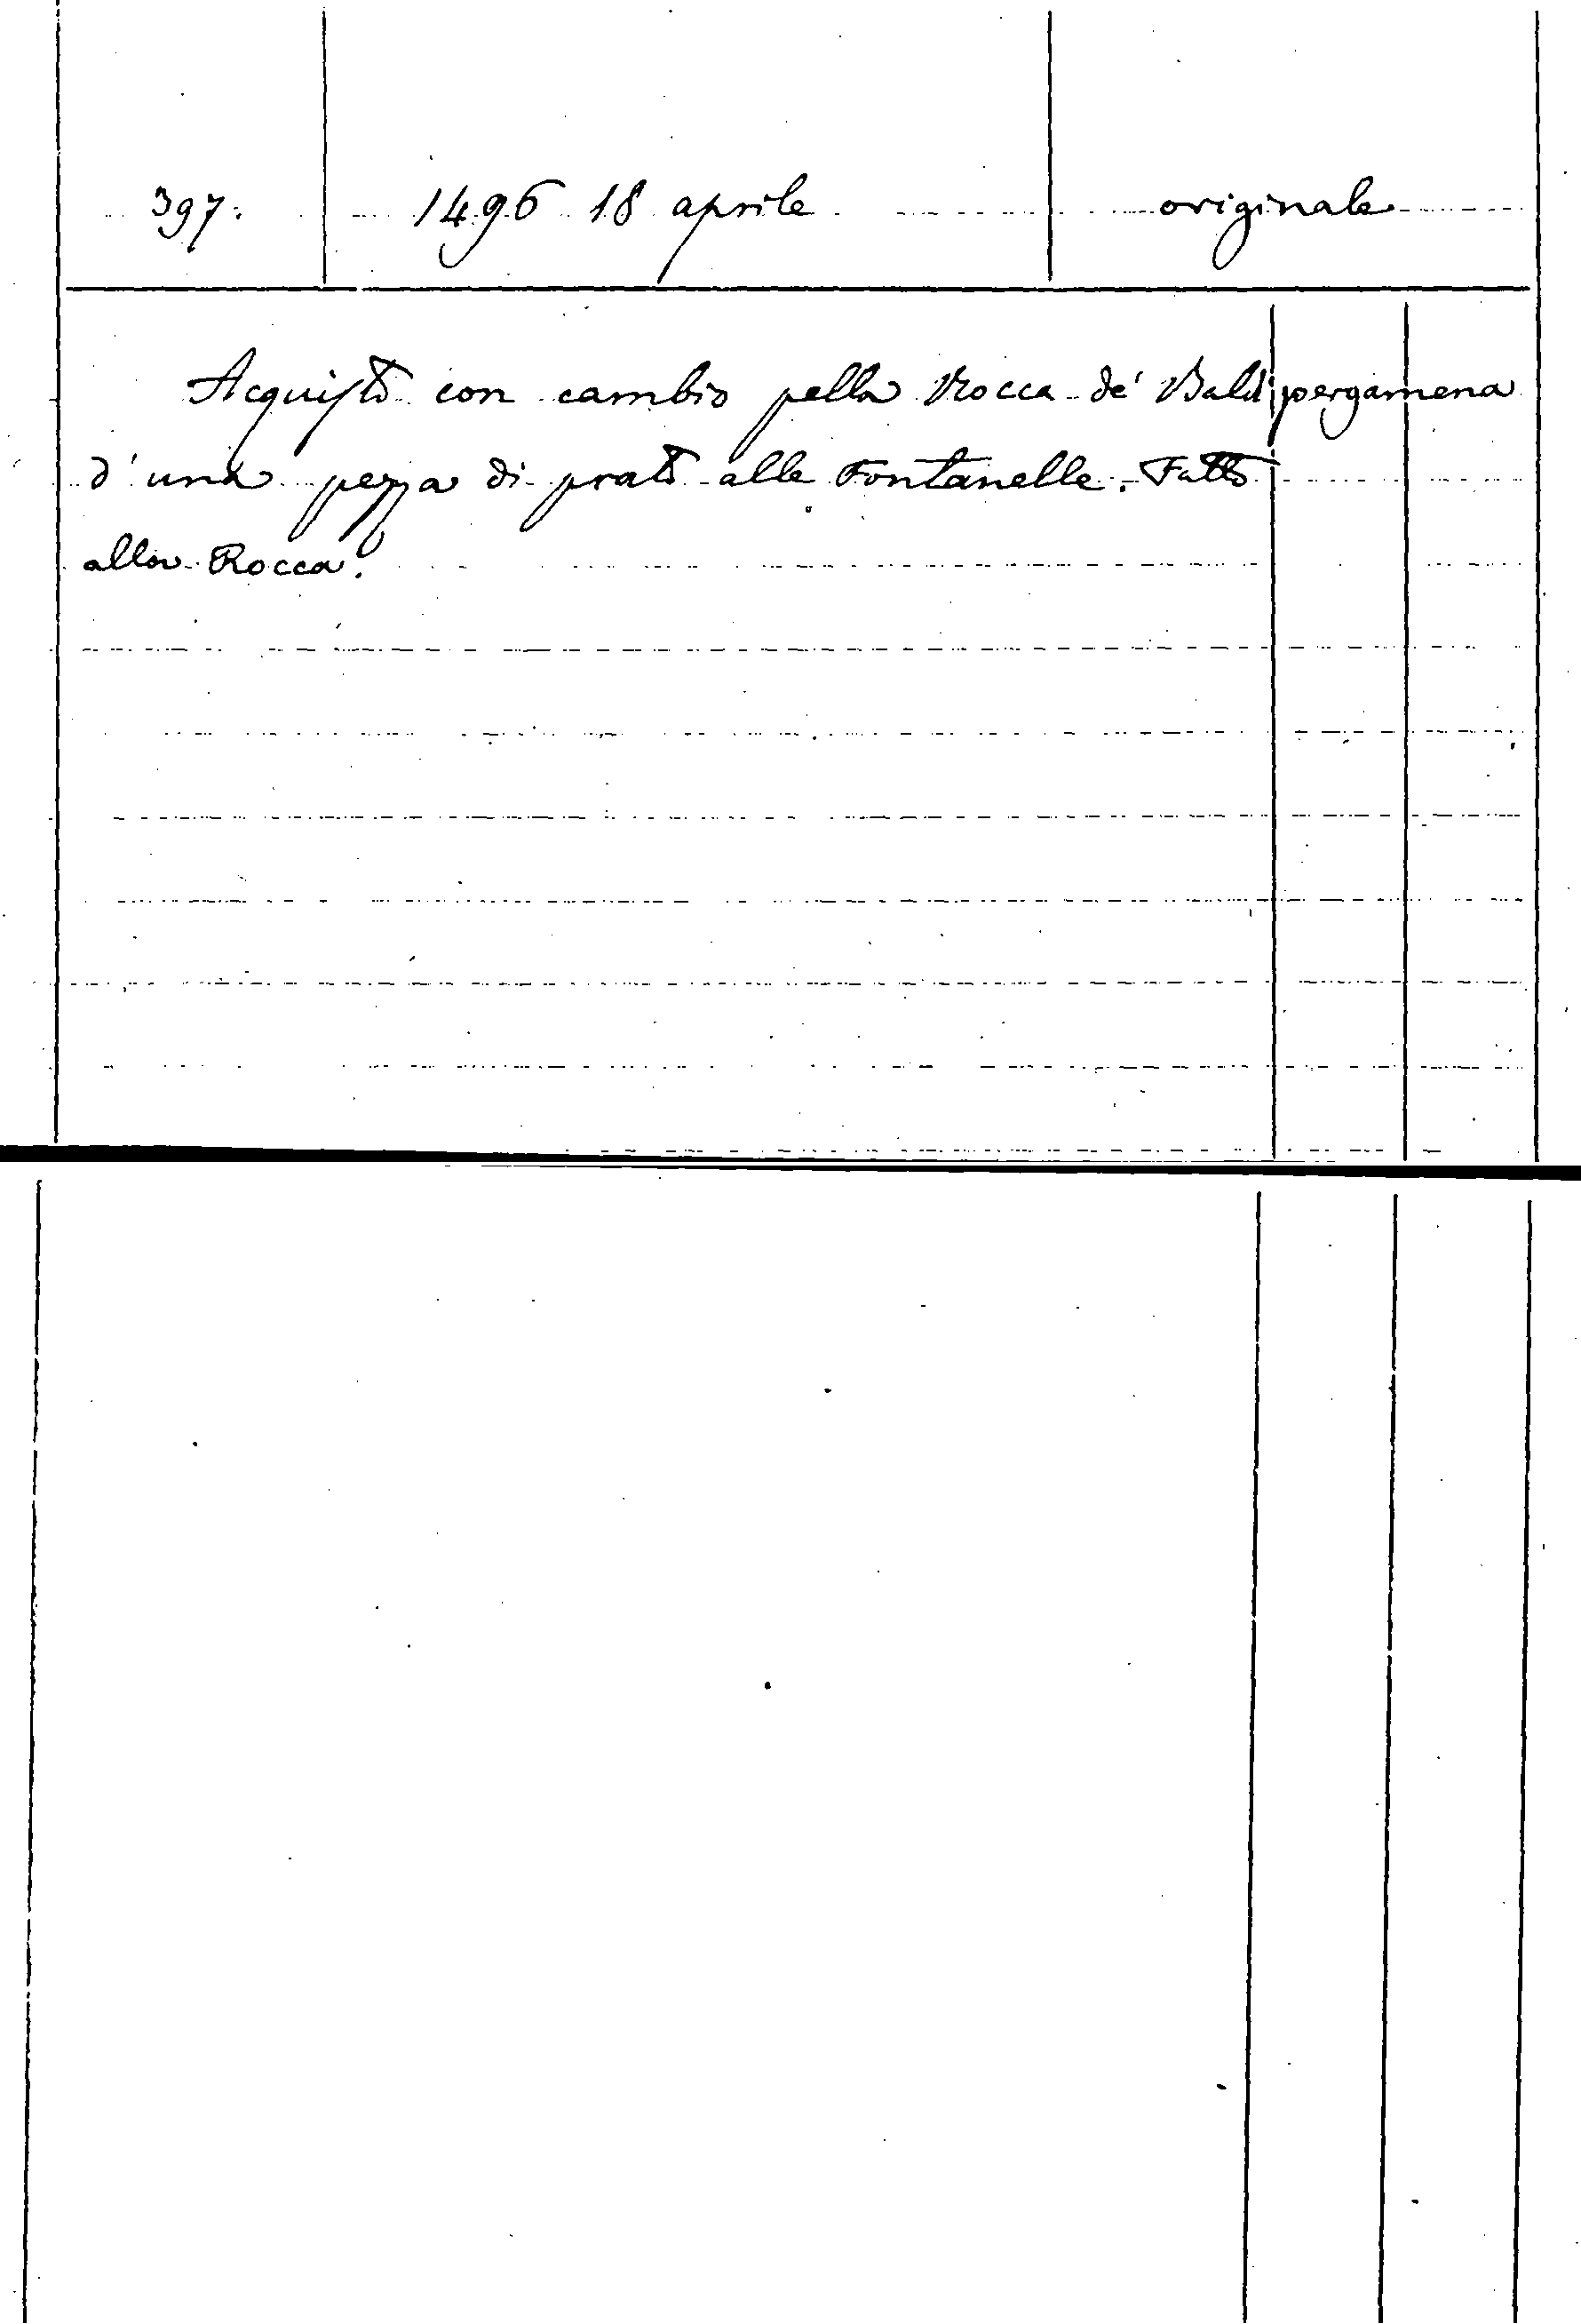 397. 1496 18 aprile originale
Acquisto con cambio pella Rocca de' Baldi pergamena
d'una pezza di prato alle Fontanelle. Fatto
alla Rocca.